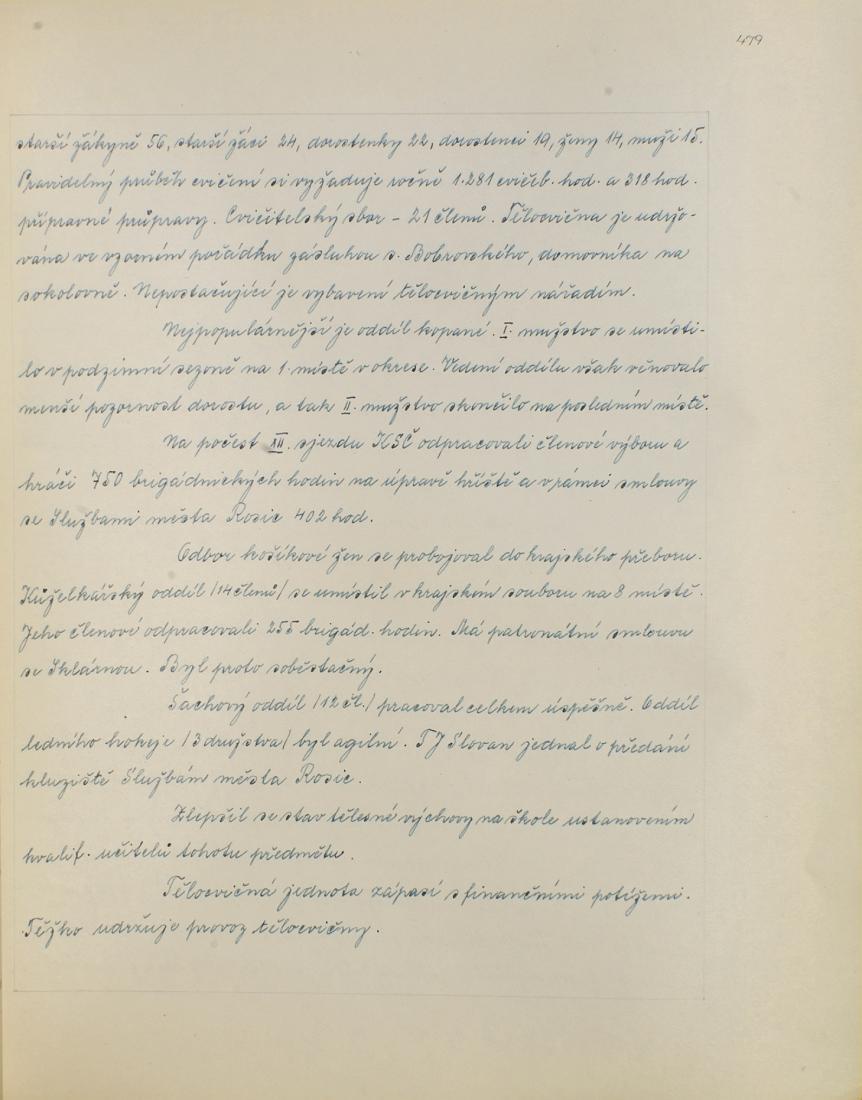 479
starší žákyně 56, starší žáci 24, dorostenky 22, dorostenci 19, ženy 14, muži 15.
Pravidelný průběh cvičení si vyžaduje ročně 1.281 cvičeb. hod. a 318 hod.
přípravné průpravy. Cvičitelský sbor – 21 členů. Tělocvična je udržo-
vána ve vzorném pořádku zásluhou s. Bobrovského, domovníka na
sokolovně. Nepostačující je vybavení tělocvičným nářadím.
Nejpopulárnější je oddíl kopané. I. mužstvo se umísti-
lo v podzimní sezoně na 1. místě v okrese. Vedení oddílu však věnovalo
menší pozornost dorostu, a tak II. mužstvo skončilo na posledním místě.
Na počest XII. sjezdu KSČ odpracovali členové výboru a
hráči 750 brigádnických hodin na úpravě hřiště a v rámci smlouvy
se Službami města Rosic 402 hod.
Odbor košíkové žen se probojoval do krajského přeboru.
Kuželkářský oddíl /14 členů/ se umístil v krajském souboru na 8 místě.
Jeho členové odpracovali 255 brigád. hodin. Má patronátní smlouvu
se Sklárnou. Byl proto soběstačný.
Šachový oddíl /12 čl./ pracoval celkem úspěšně. Oddíl
ledního hokeje /3 družstva/ byl agilní. TJ Slovan jednal o předání
kluziště Službám města Rosic.
Zlepšil se stav tělesné výchovy na škole ustanovením
kvalif. učitelů tohoto předmětu.
Tělocvičná jednota zápasí s finančními potížemi.
Těžko udržuje provoz tělocvičny.